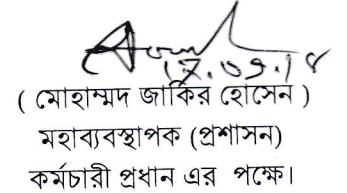 ১৭.০৭.১৪
( মোহাম্মদ জাকির হোসেন )
মহাব্যবস্থাপক (প্রশাসন)
কর্মচারী প্রধান এর পক্ষে।